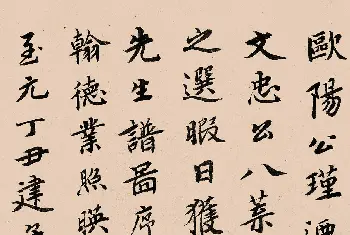 歐陽公瑾
文忠公八葉
之選暇日獲
先生譜啚席
翰德業照暎
至元丁丑建